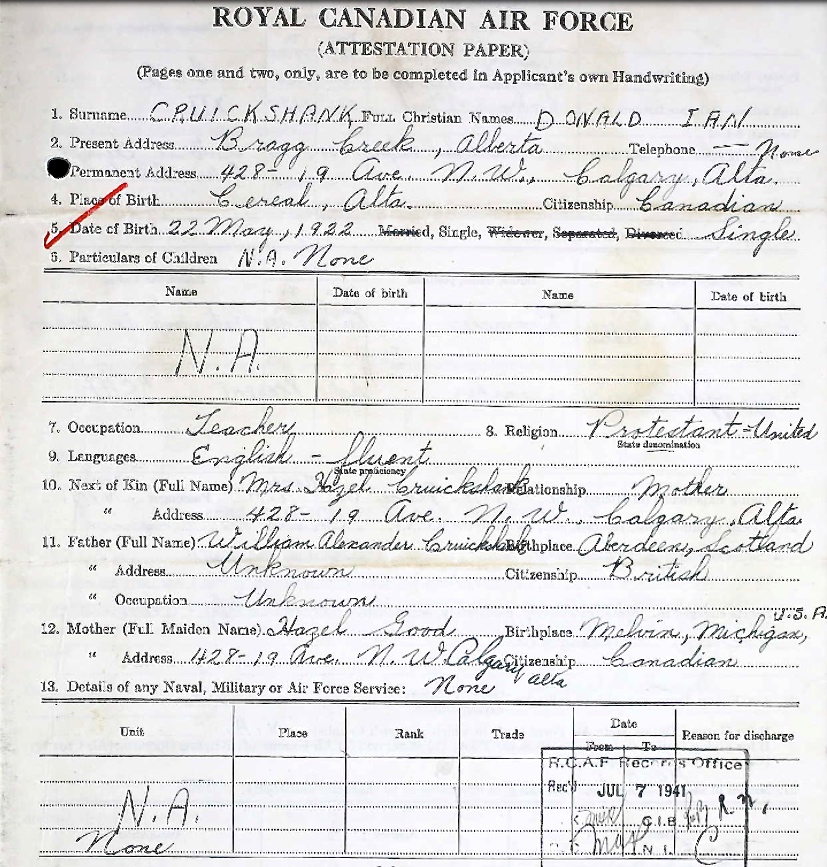 ROYAL CANADIAN AIR FORCE
(ATTESTATION PAPER)
(Pages one and two, only, are to be completed in Applicant's own Handwriting)
1. Surname CRUICKSHANK Full Christian Names DONALD IAN
2. Present Address Bragg Creek, Alberta Telephone — None
Permanent Address 428-19 Ave. N.W., Calgary, Alta.
4. Place of Birth Cereal, Alta. Citizenship Canadian
5. Date of Birth 22 May, 1922 Married, Single, Widower, Separated, Divorced Single
6. Particulars of Children N.A. None
Name Date of birth Name Date of birth
N.A.
7. Occupation Teacher 8. Religion Protestant-United
State denomination
9. Languages English - fluent
State proficiency
10. Next of Kin (Full Name) Mrs. Hazel Cruickshank Relationship Mother
" Address 428-19 Ave. N.W., Calgary, Alta.
11. Father (Full Name) William Alexander Cruickshank Birthplace Aberdeen, Scotland
" Address Unknown Citizenship British
" Occupation Unknown
12. Mother (Full Maiden Name) Hazel Good Birthplace Melvin, Michigan, U.S.A.
" Address 428-19 Ave. N.W. Calgary Alta Citizenship Canadian
13. Details of any Naval, Military or Air Force Service: None
Unit Place Rank Trade Date Reason for discharge
From To
R.C.A.F Records Office
Rec'd JUL 7 1941
N.A.
C.I.B.
None
N.I.